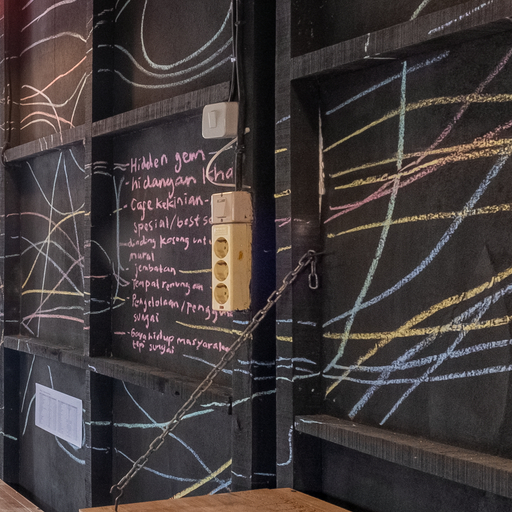 - Hidden gem -
hidangan kha
- Cafe kekinian -
spesial/best s
- dinding kosong untu
mural
- jembatan
- Tempat renungan
- Pengelolaan/penggu
sungai
- Gaya hidup masyaraka
tepi sungai